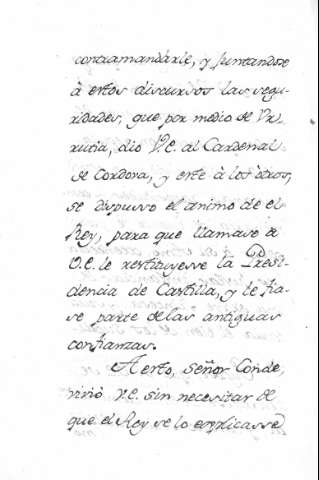 contramandárle, y juntandose
à estos discursos las segu-
ridades, que por medio de Vr-
rutia, dio V.E. al Cardenal
de Cordova, y este à los ótros,
se dispusso el animo de el
Rey, para que llamase à
V.E. le restituyesse la Presi-
dencia de Castilla, y le fia-
se parte de las antiguas
confianzas.
A esto, señor Conde,
vivió V.E. sin necesitar de
que el Rey se lo explicasse